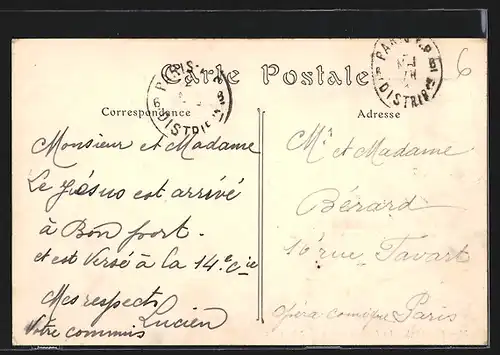 Carte Postale
Correspondance
Adresse
PARIS
DISTRIB
PARIS
DISTRIB
6
Monsieur et Madame
Le Jésus est arrivé
à Bon port.
et est Versé à la 14.e Cie
Mes respects
Lucien
Votre commis
Mr et Madame
Bérard
16 rue Favart
opéra comique Paris